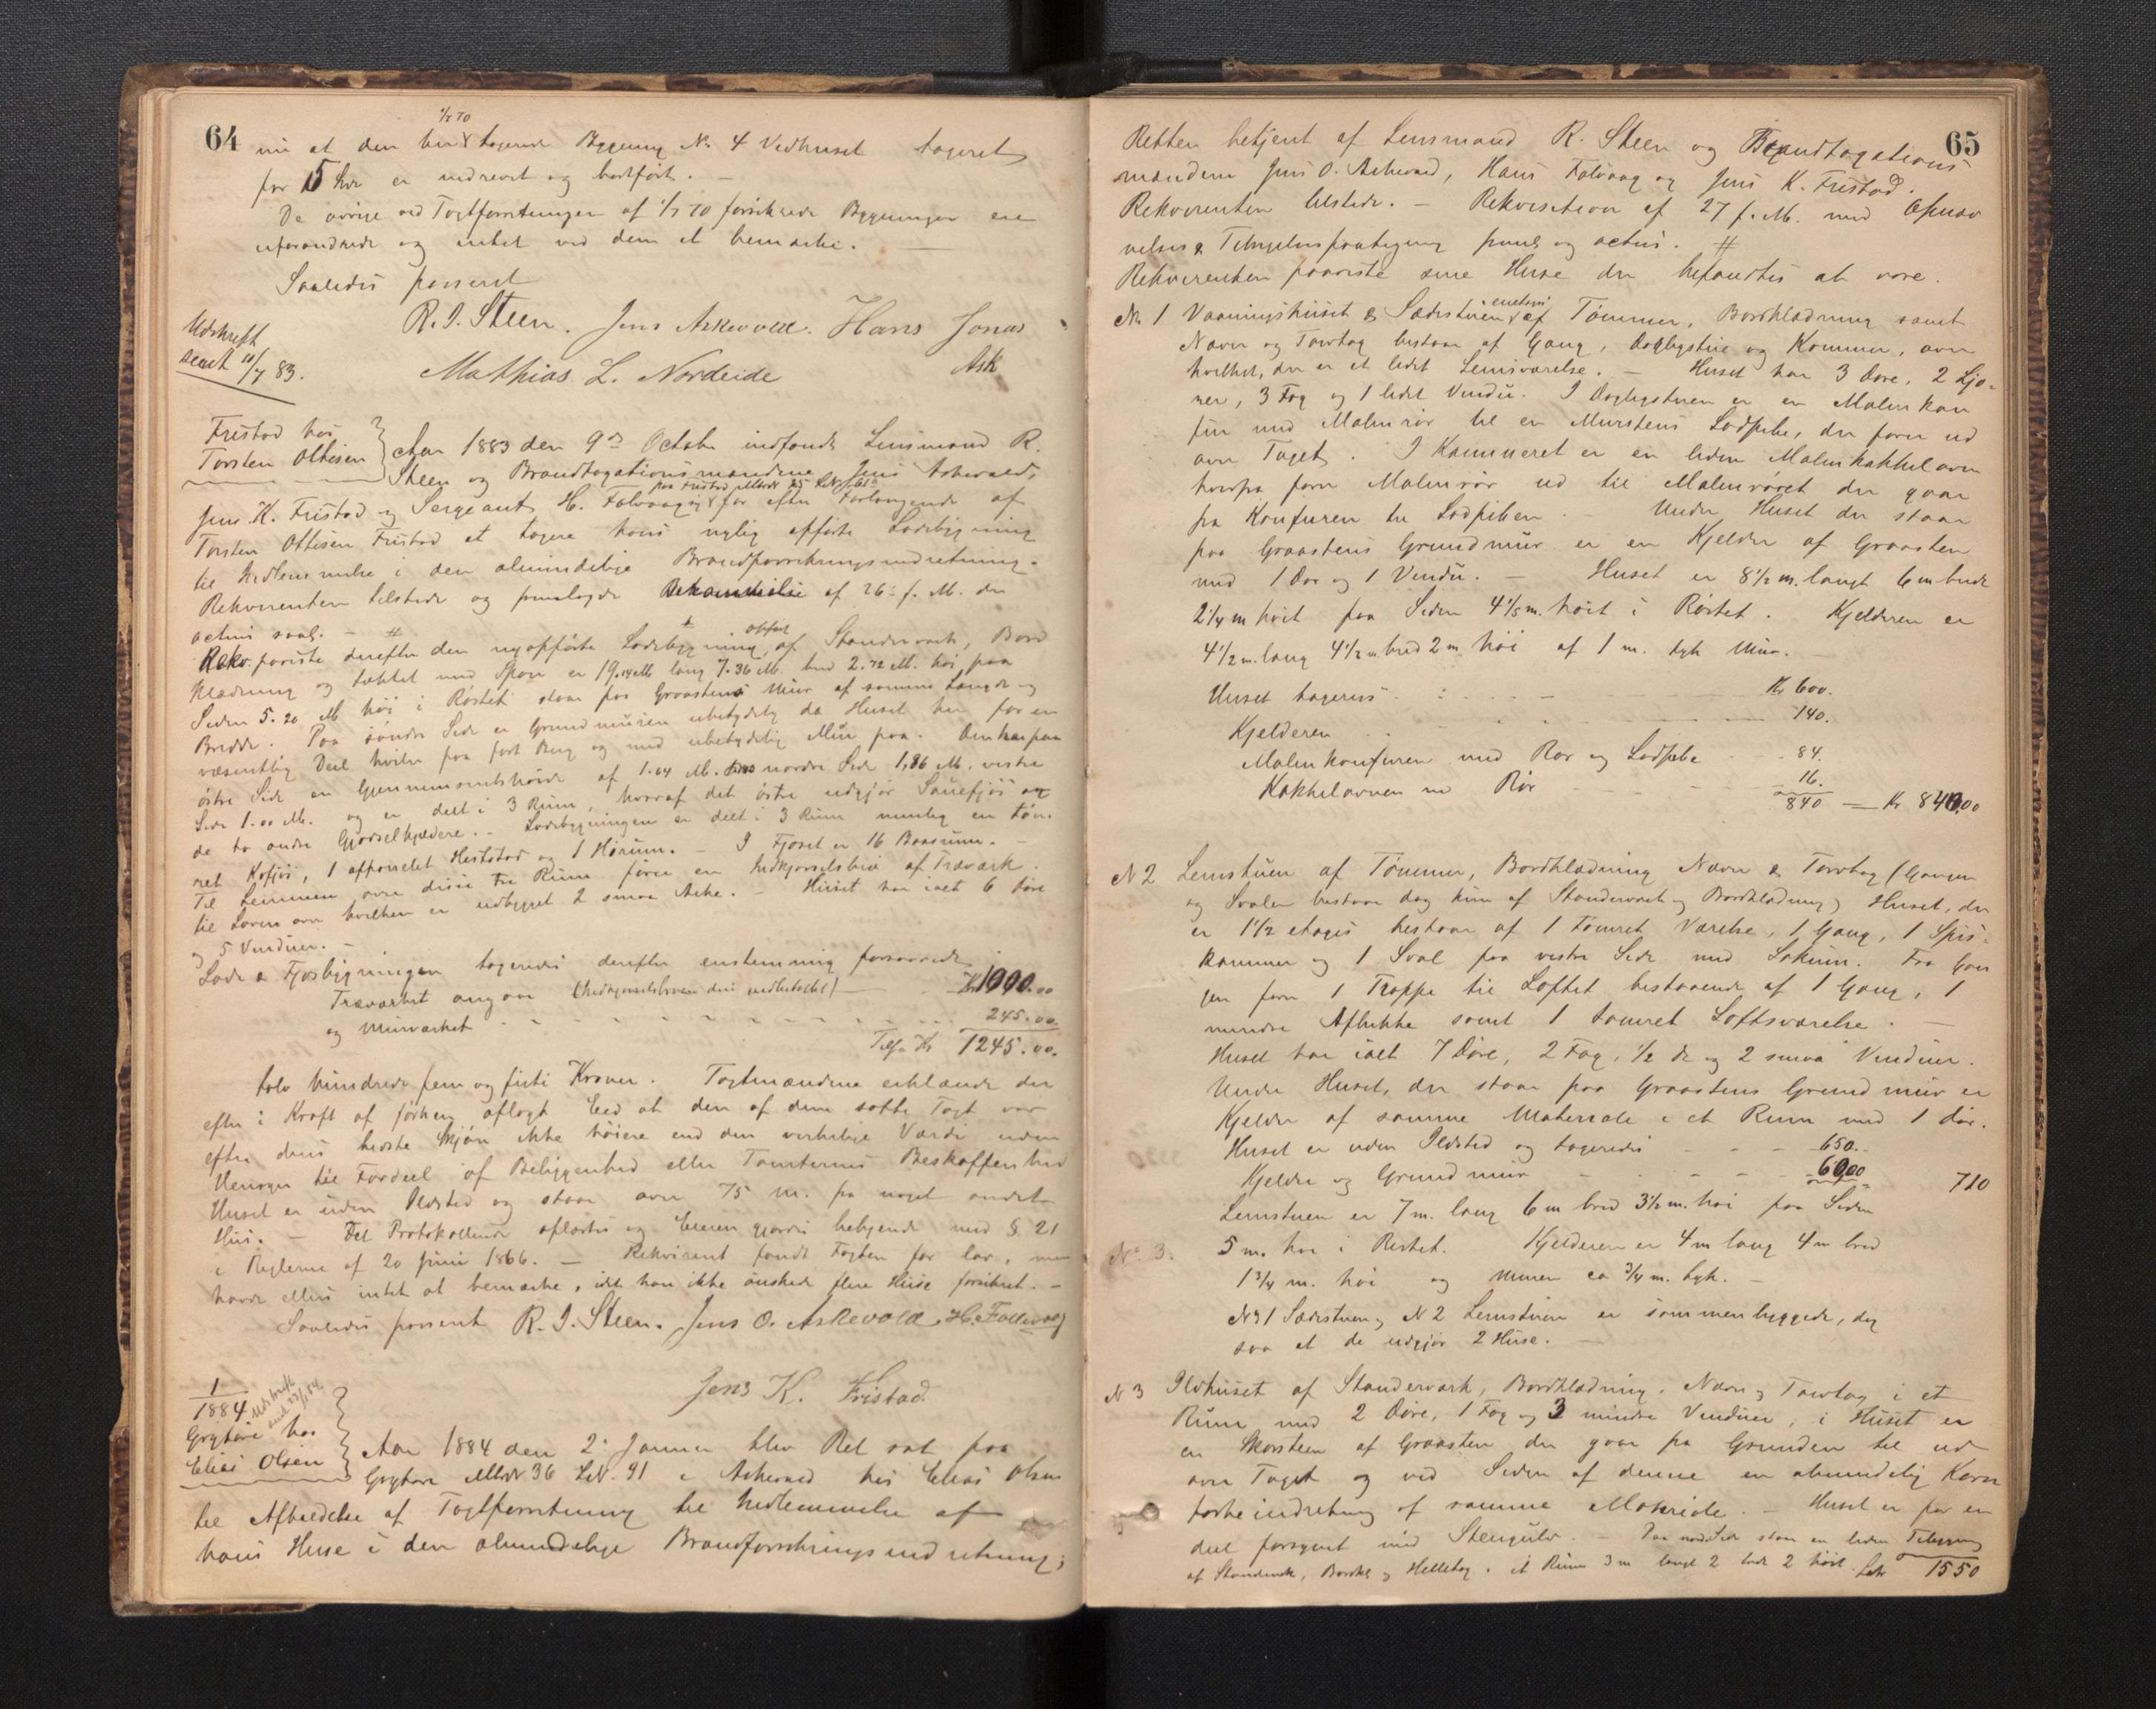 64
1/7 70
nu at den under taxerede Bygning No 4 Vedhuset taxeret
for 15 Kr er nedrevet og bortført. —
De øvrige ved Taxtforretningen af 1/7 70 forsikrede Bygninger ere
uforandrede og intet ved dem at bemærke. —
Saaledes passeret
R. J. Steen. Jens Askevold. Hans Jonas
Ask
Mathias L. Nordeide
Udskrift
sendt 10/7 83.
Fristad hos
Torsten Ottesen
Aar 1883 den 9de October indfandt Lensmand R.
Steen og Brandtaxationsmændene Jens Askevold,
Jens K. Fristad og Sergeant H. Folvaag sig for efter Forlangende af
Torsten Ottesen Fristad at taxere hans nylig opførte Ladebygning
til Indlemmelse i den almindelige Brandforsikringsindretning.
Rekvirenten tilstede og fremlagde af 26 f. M. der
acteres saal. — #
Rekv. paaviste derefter den nyopførte Ladebygning, opført af Standerværk, Bord
klædning og tækket med Spon er 19.14 M lang 7.36 M. bred 2.72 M. høi paa
Siden 5.20 M høi i Røstet staar paa Graastens Muur af samme Længde og
Bredde. Paa søndre Side er Grundmuuren ubetydelig da Huset her for en
væsentlig Deel hviler paa fast Berg og med ubetydelig Muur paa. Den har paa
østre Side en Gjennemsnitshøide af 1.64 M. nordre Side 1,86 M. vestre
Side 1.00 M. og er deelt i 3 Rum, hvoraf det østre udgjør Sauefjøs og
de to andre Gjødselkjeldere. — Ladebygningen er deelt i 3 Rum nemlig en tøm
ret Kofjøs, 1 afpanelet Heststad og 1 Hørum. — I Fjøset er 16 Baasrum. —
Til Lemmen over disse tre Rum fører en Indkjørselsbro af Træværk
til Laven over hvilken er udbygget 2 smaa Arke. — Huset har ialt 6 Døre
og 5 Vinduer. —
Lade & Fjøsbygningen taxeredes derefter enstemmig forsaavidt
Træværket angaar (Indkjørselsbroen deri medbetaget) — Kr 1000.00
og Muurværket 245.00
Tilss. Kr 1245.00.
tolv hundrede fem og firti Kroner. Taxtmændene erklærede der
efter i Kraft af forhen aflagt Eed at den af dem satte Taxt var
efter deres bedste Skjøn ikke høiere end den virkelige Værdi uden
Hensyn til Fordeel af Beliggenhed eller Tomternes Beskaffenhed
Huset er uden Ildsted og staar over 75 M. fra noget andet
Huus. — Det Protokollerede oplæstes og Eieren gjordes bekjendt med § 21
i Reglerne af 20 Juni 1866. — Rekvirent fandt Taxten for lav, men
havde ellers intet at bemærke, idet han ikke ønskede flere Huse forsikret. —
Saaledes passeret R. J. Steen. Jens O. Askevold. H. Follevaag
Jens K. Fristad
1
1884
Udskrift
Grytøre hos
Elias Olsen
Aar 1884 den 2. Januar blev Ret sat paa
Grytøre MNr 36 LN. 91 i Askevold hos Elias Olsen
til Afholdelse af Taxtforretning til Indlemmelse af
hans Huse i den almindelige Brandforsikringsindretning;
65
Retten betjent af Lensmand R. Steen og Brandtaxations
mændene Jens O. Askevold, Hans Folvaag og Jens K. Fristad.
Rekvirenten tilstede. — Rekvisition af 27 f. M. med Opnæv
nelses & Tilsigelsespaategning freml. og acteres. #
Rekvirenten paaviste sine Huse der befandtes at være.
No 1 Vaaningshuset & Sædestuen, enetages af Tømmer, Bordklædning samt
Næver og Torvtag bestaar af Gang, Dagligstue og Kammer, over
hvilket, der er et lidet Lemsværelse. — Huset har 3 Døre, 2 Ljo-
rer, 3 Fag og 1 lidet Vindu. I Dagligstuen er en Malmkom
fur med Malmrør til en Murstens Lodpibe, der fører ud
over Taget. I Kammeret er en liden Malmkakkelovn
hvorfra fører Malmrør ud til Malmrøret der gaar
fra Komfuren til Lodpiben. — Under Huset der staar
paa Graastens Grundmuur er en Kjelder af Graasten
med 1 Dør og 1 Vindu. — Huset er 8 1/2 m. langt 6 m bredt
2 1/4 m høit paa Siden 4 1/5 m. høit i Røstet. Kjelderen er
4 1/2 m. lang 4 1/2 m bred 2 m høi af 1 m. tyk Muur.
Huset taxeres Kr 600.
Kjelderen 140.
Malmkomfuren med Rør og Lodpibe 84.
Kakkelovnen m Rør 16.
840 — Kr 840.00
N 2 Lemstuen af Tømmer, Bordklædning Næver & Torvtag (Gangen
og Svalen bestaar dog kun af Standerværk og Bordklædning) Huset, der
er 1 1/2 etages bestaar af 1 tømret Værelse, 1 Gang, 1 Spis-
kammer og 1 Sval paa vestre Side med Lokum. Fra Gan
gen fører 1 Trappe til Loftet bestaaende af 1 Gang, 1
mindre Aflukke samt 1 tømret Loftsværelse. —
Huset har ialt 7 Døre, 2 Fag, 1/2 do og 2 smaa Vinduer.
Under Huset, der staar paa Graastens Grundmuur er
Kjelder af samme Materiale i et Rum med 1 Dør.
Huset er uden Ildsted og taxeredes 650.
Kjelder og Grundmuur 60.00 710
Lemstuen er 7 m. lang 6 m bred 3 1/2 m. høi paa Siden
No 3.
5 m. høi i Røstet. Kjelderen er 4 m lang 4 m bred
1 3/4 m. høi og Muren ca 3/4 m. tyk. —
No 1 Sædestuen og N 2 Lemstuen er sammenbyggede, dog
saa at de udgjør 2 Huse. —
N 3 Ildhuset af Standerværk, Bordklædning, Næver og Torvtag i et
Rum med 2 Døre, 1 Fag og 3 mindre Vinduer, i Huset er
en Skorsteen af Graasten der gaar fra Grunden til ud
over Taget og ved Siden af denne en almindelig Korn
tørkeindretning af samme Materiale. — Huset er for en
deel forsynet med Steengulv. — Paa nordre Side staar en liden Tilbygning
af Standerværk, Bordkl. og Helletag. et Rum 3 m langt 2 bredt 2 høit. Lat. 1550